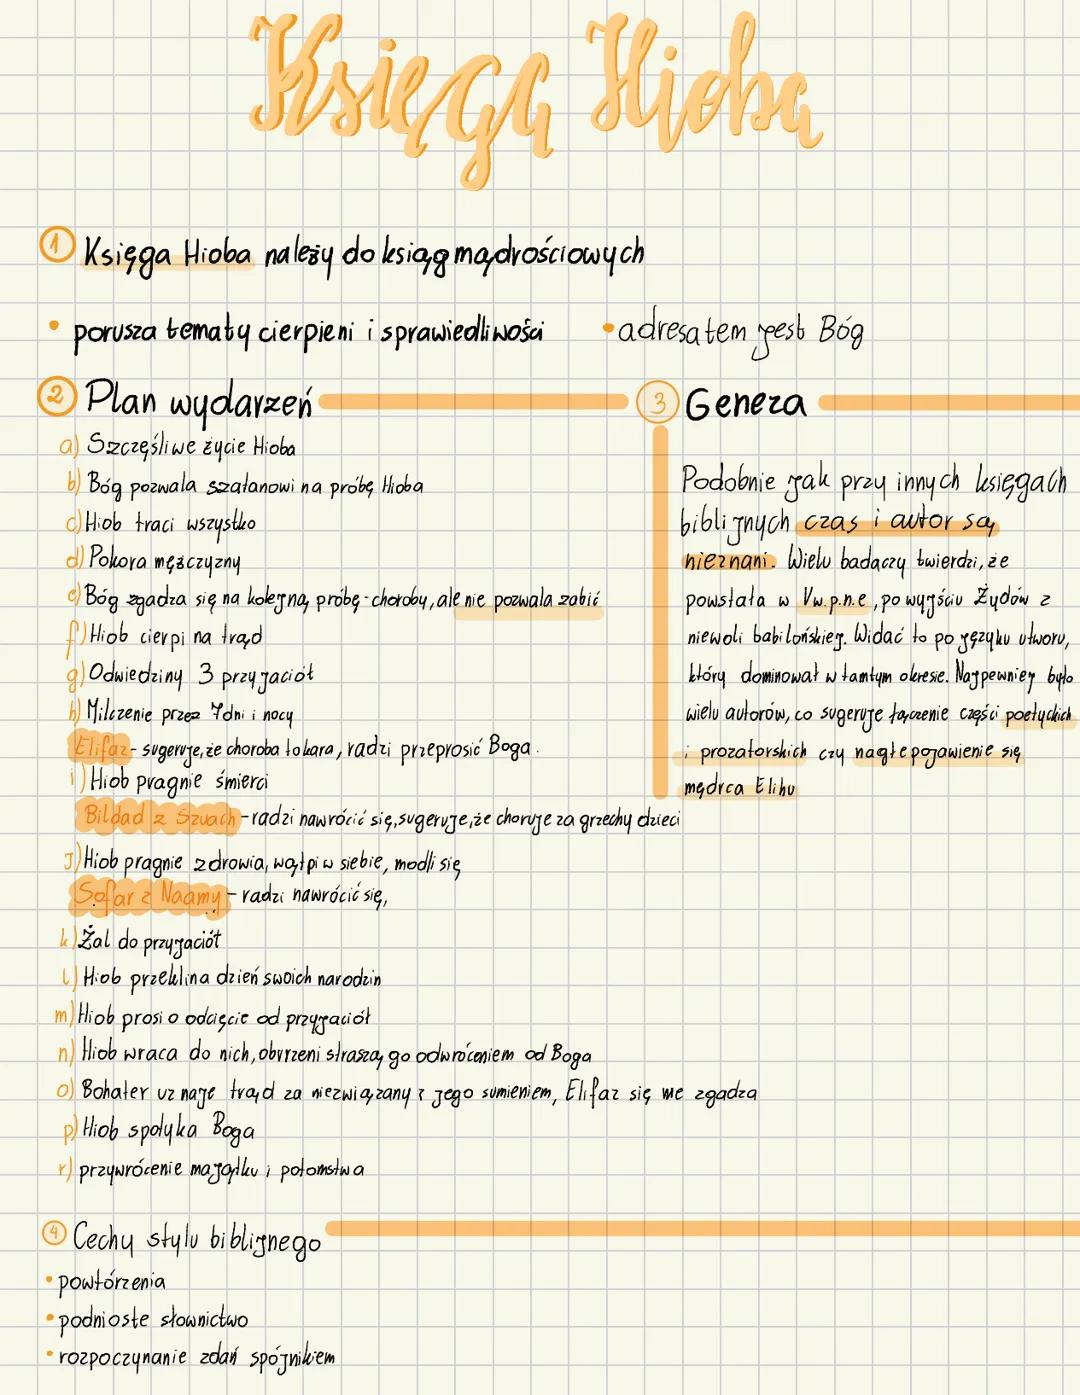 Księga Hioba
1 Księga Hioba należy do ksiąg mądrościowych
• porusza tematy cierpieni i sprawiedliwości
• adresatem jest Bóg
2 Plan wydarzeń
a) Szczęśliwe życie Hioba
b) Bóg pozwala szatanowi na próbę Hioba
c) Hiob traci wszystko
d) Pokora mężczyzny
e) Bóg zgadza się na kolejną próbę - choroby, ale nie pozwala zabić
f) Hiob cierpi na trąd
g) Odwiedziny 3 przyjaciół
h) Milczenie przez 7dni i nocy
Elifaz - sugeruje, że choroba to kara, radzi przeprosić Boga.
i) Hiob pragnie śmierci
Bildad z Szuach - radzi nawrócić się, sugeruje, że choruje za grzechy dzieci
j) Hiob pragnie zdrowia, wątpi w siebie, modli się
Sofar z Naamy - radzi nawrócić się,
k) Żal do przyjaciół
l) Hiob przeklina dzień swoich narodzin
m) Hiob prosi o odcięcie od przyjaciół
n) Hiob wraca do nich, oburzeni straszą go odwróceniem od Boga
o) Bohater uznaje trąd za niezwiązany z jego sumieniem, Elifaz się nie zgadza
p) Hiob spotyka Boga
r) przywrócenie majątku i potomstwa
3 Geneza
Podobnie jak przy innych księgach
biblijnych czas i autor są
nieznani. Wielu badaczy twierdzi, że
powstała w Vw.p.n.e, po wyjściu Żydów z
niewoli babilońskiej. Widać to po języku utworu,
który dominował w tamtym okresie. Najpewniej było
wielu autorów, co sugeruje łączenie części poetyckich
i prozatorskich czy nagłe pojawienie się
mędrca Elihu
4 Cechy stylu biblijnego
• powtórzenia
• podniosłe słownictwo
• rozpoczynanie zdań spójnikiem